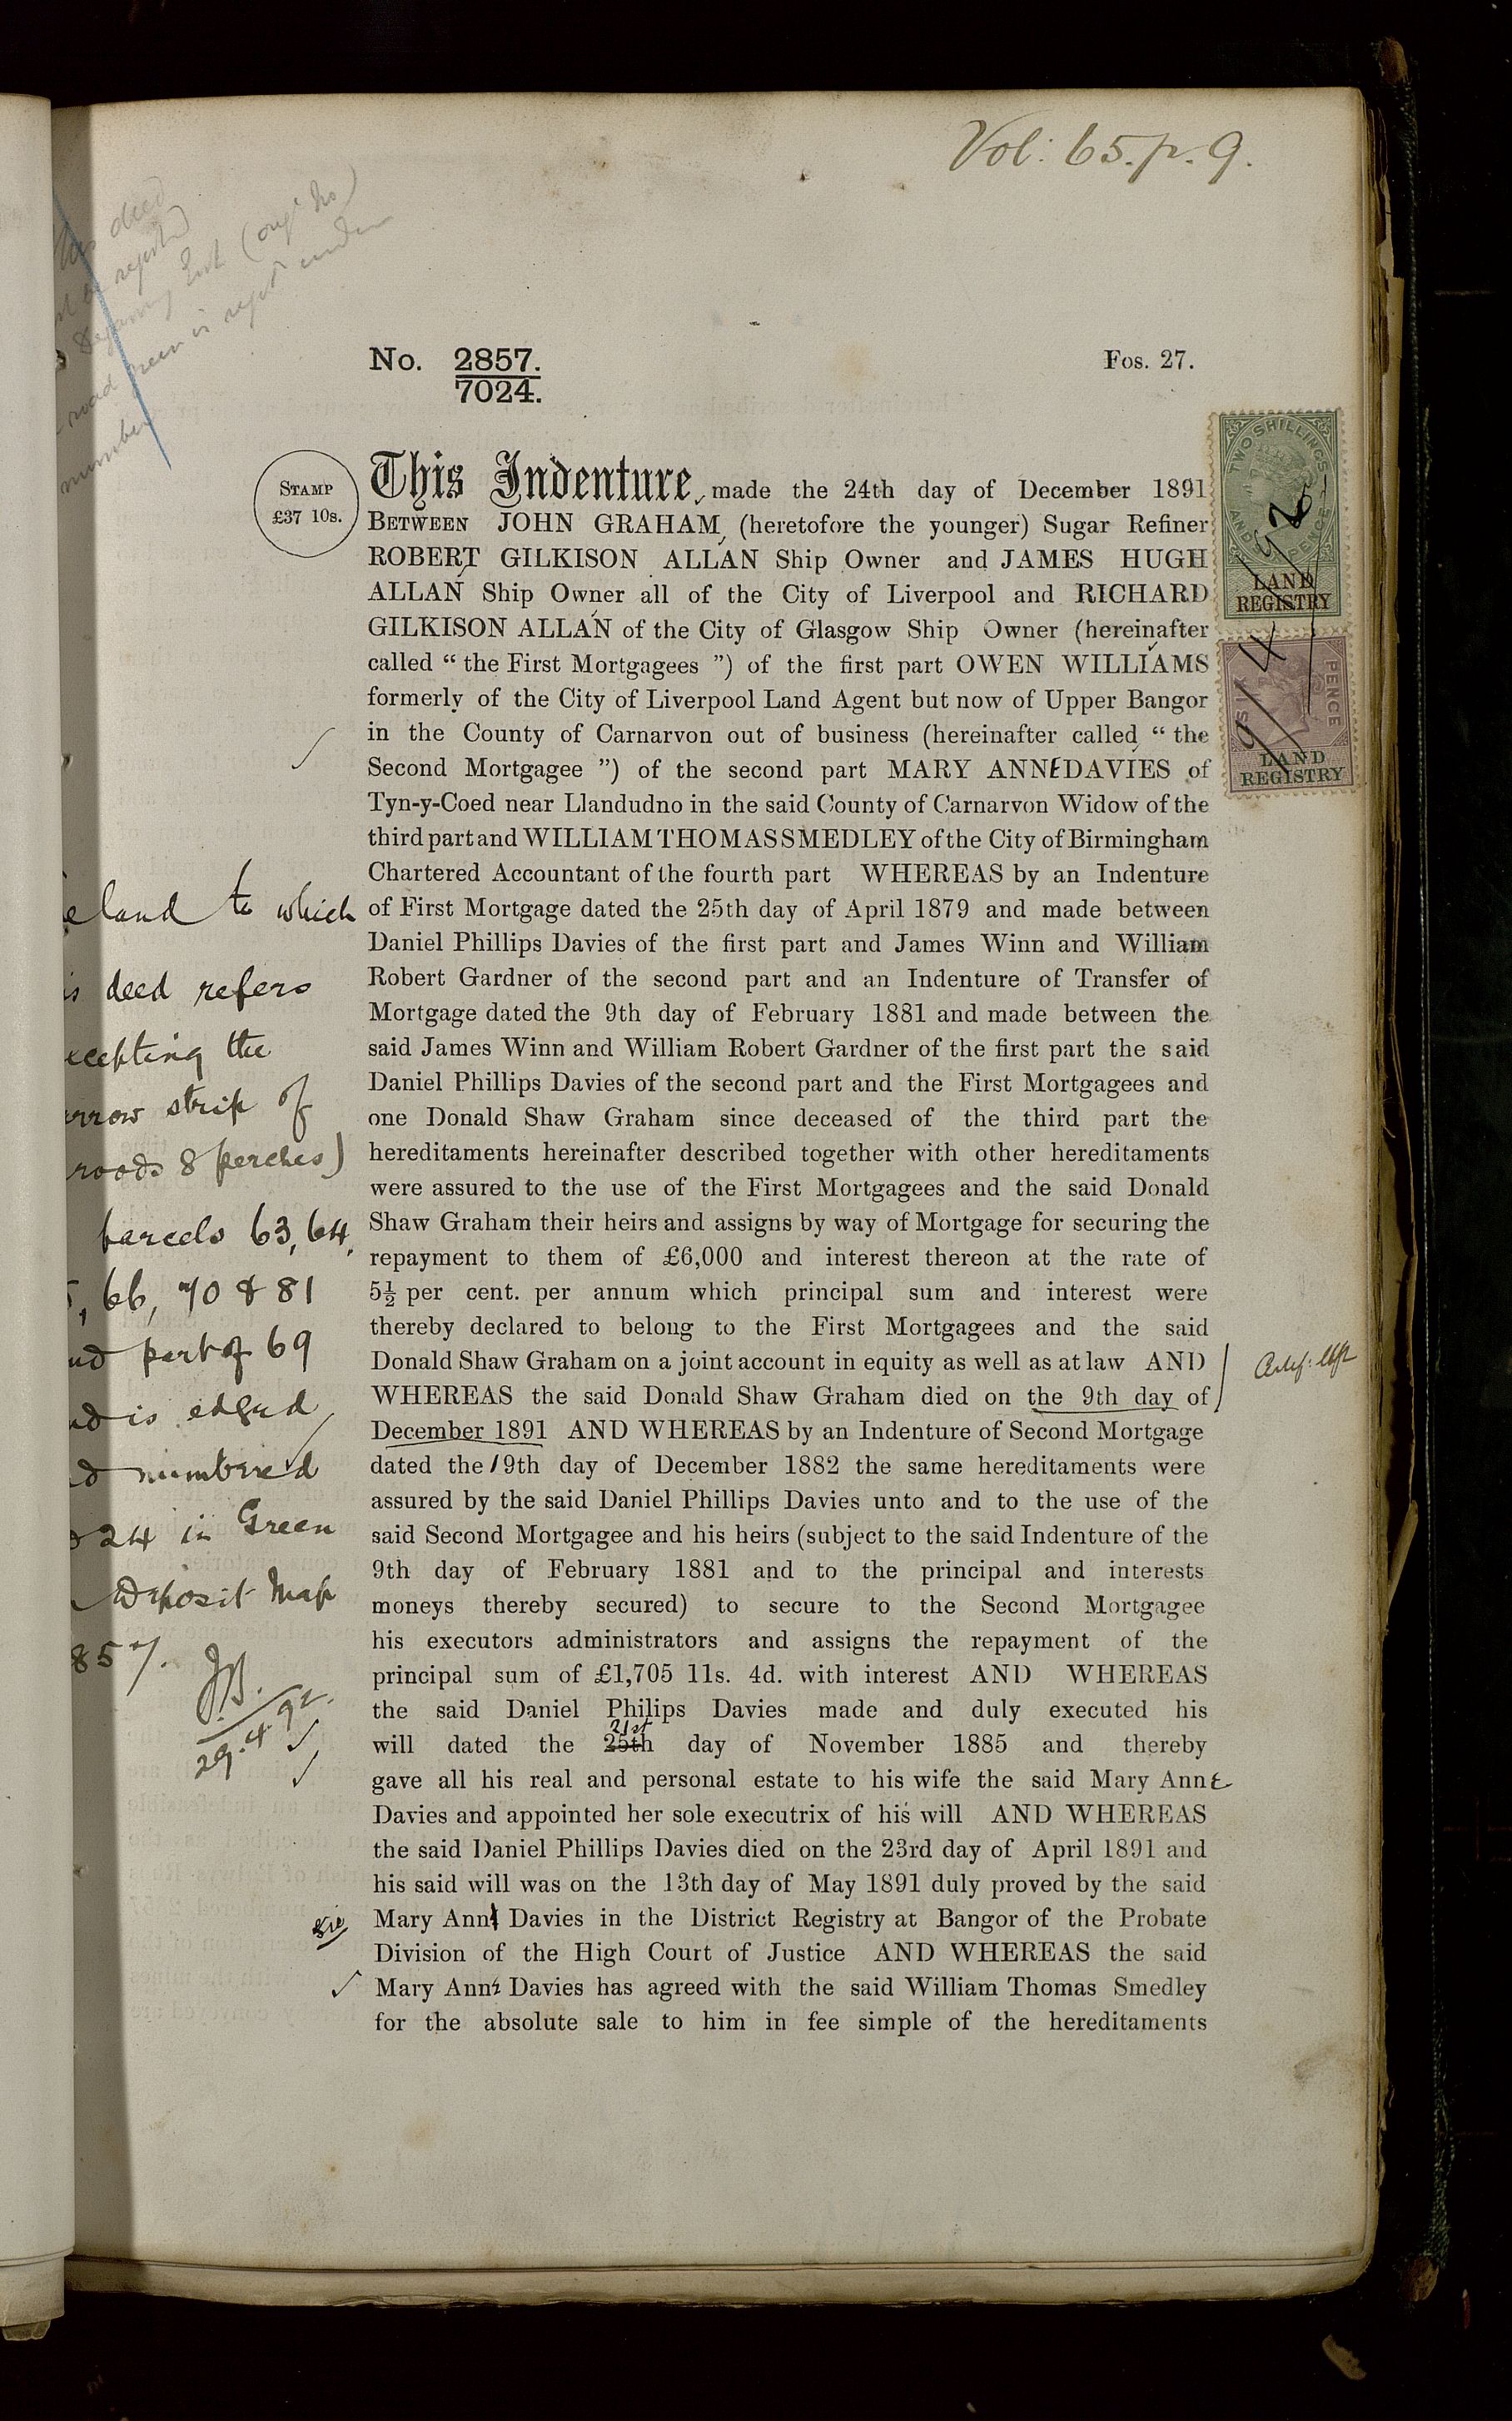 Vol: 65. p. 9.
No. 2857.
7024.
Fos. 27.
STAMP
£37 10s.
This Indenture made the 24th day of December 1891
BETWEEN JOHN GRAHAM (heretofore the younger) Sugar Refiner
ROBERT GILKISON ALLAN Ship Owner and JAMES HUGH
ALLAN Ship Owner all of the City of Liverpool and RICHARD
GILKISON ALLAN of the City of Glasgow Ship Owner (hereinafter
called “ the First Mortgagees ”) of the first part OWEN WILLIAMS
formerly of the City of Liverpool Land Agent but now of Upper Bangor
in the County of Carnarvon out of business (hereinafter called “ the
Second Mortgagee ”) of the second part MARY ANNE DAVIES of
Tyn-y-Coed near Llandudno in the said County of Carnarvon Widow of the
third part and WILLIAM THOMAS SMEDLEY of the City of Birmingham
Chartered Accountant of the fourth part WHEREAS by an Indenture
of First Mortgage dated the 25th day of April 1879 and made between
Daniel Phillips Davies of the first part and James Winn and William
Robert Gardner of the second part and an Indenture of Transfer of
Mortgage dated the 9th day of February 1881 and made between the
said James Winn and William Robert Gardner of the first part the said
Daniel Phillips Davies of the second part and the First Mortgagees and
one Donald Shaw Graham since deceased of the third part the
hereditaments hereinafter described together with other hereditaments
were assured to the use of the First Mortgagees and the said Donald
Shaw Graham their heirs and assigns by way of Mortgage for securing the
repayment to them of £6,000 and interest thereon at the rate of
5½ per cent. per annum which principal sum and interest were
thereby declared to belong to the First Mortgagees and the said
Donald Shaw Graham on a joint account in equity as well as at law AND
WHEREAS the said Donald Shaw Graham died on the 9th day of
December 1891 AND WHEREAS by an Indenture of Second Mortgage
dated the 19th day of December 1882 the same hereditaments were
assured by the said Daniel Phillips Davies unto and to the use of the
said Second Mortgagee and his heirs (subject to the said Indenture of the
9th day of February 1881 and to the principal and interests
moneys thereby secured) to secure to the Second Mortgagee
his executors administrators and assigns the repayment of the
principal sum of £1,705 11s. 4d. with interest AND WHEREAS
the said Daniel Philips Davies made and duly executed his
21st
will dated the 25th day of November 1885 and thereby
gave all his real and personal estate to his wife the said Mary Anne
Davies and appointed her sole executrix of his will AND WHEREAS
the said Daniel Phillips Davies died on the 23rd day of April 1891 and
his said will was on the 13th day of May 1891 duly proved by the said
Mary Ann Davies in the District Registry at Bangor of the Probate
Division of the High Court of Justice AND WHEREAS the said
Mary Anne Davies has agreed with the said William Thomas Smedley
for the absolute sale to him in fee simple of the hereditaments
TWO SHILLINGS
AND PENCE
LAND
REGISTRY
SIX PENCE
LAND
REGISTRY
land to which
deed refers
the
strip of
roods 8 perches)
parcels 63, 64,
66, 70 & 81
part of 69
is edged
numbered
24 in Green
Deposit Map
857.
JB.
29.4.92.
sic